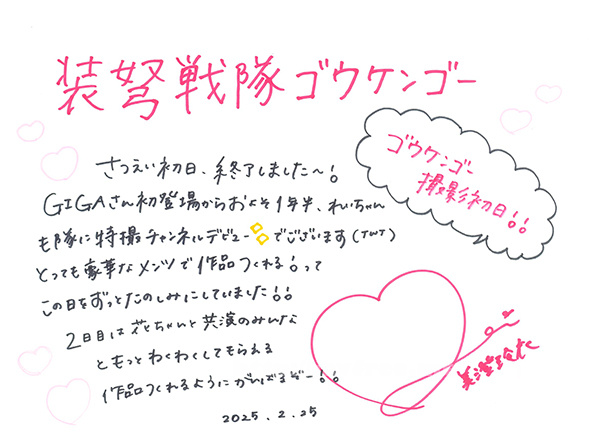 装弩戦隊ゴウケンゴー
ゴウケンゴー
撮影初日!!
さつえい初日、終了しました〜!
GIGAさん初登場からおよそ1年半、れいちゃん
も隊に特撮チャンネルデビュー でございます(TωT)
とっても豪華なメンツで作品つくれる!って
この日をずっとたのしみにしていました!!
2日目は花ちゃんと共演のみんな
ともっとわくわくしてもらえる
作品つくれるようにがんばるぞー!!
2025.2.25